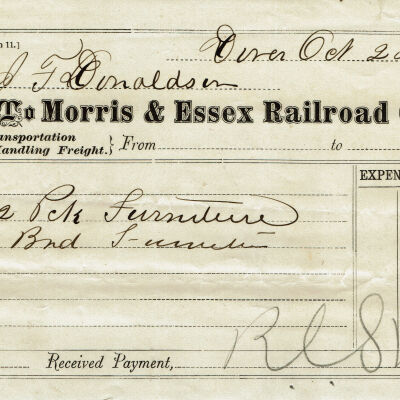 11.]
Dover Oct 22
J F Donaldson
To Morris & Essex Railroad
ansportation
Handling Freight.} From to
EXPEN
2 Pck Furniture
Bnd Furniture
Received Payment,